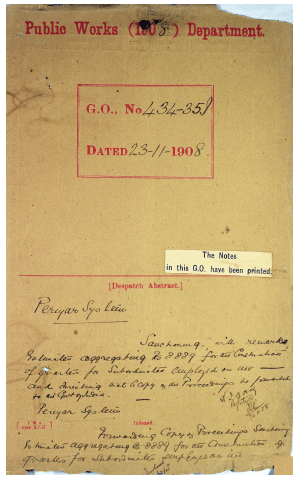 Public Works (1908) Department.
G.O., No 434-35 I
DATED 23-11-1908.
The Notes
in this G.O. have been printed.
[Despatch Abstract.]
Periyar System
Sanctioning, with remarks
Estimates aggregating Rs 8889 for the Construction
of quarters for Subordinates employed on the —
and desiring that a copy of the Proceedings be forwarded
to
Periyar System
Forwarding Copy of Proceedings Sanctioning
Estimates aggregating Rs 8889 for the Construction of
quarters for Subordinates employed on the